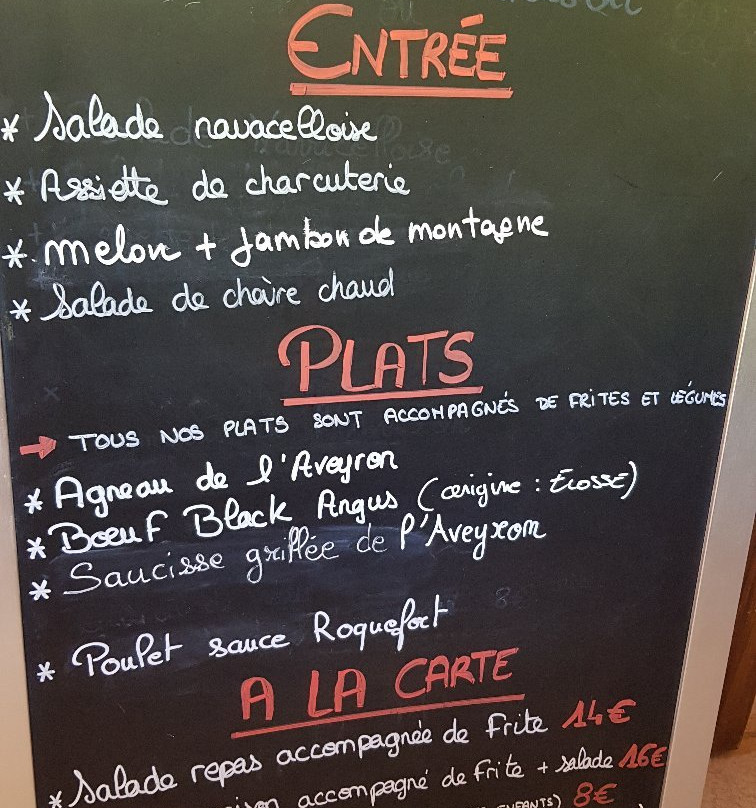 ENTRÉE
* Salade navacelloise
* Assiette de charcuterie
* melon + Jambon de montagne
* Salade de chèvre chaud
PLATS
→ TOUS NOS PLATS SONT ACCOMPAGNÉS DE FRITES ET LÉGUMES
* Agneau de l'Aveyron
* Bœuf Black Angus (origine : Écosse)
* Saucisse grillée de l'Aveyron
* Poulet sauce Roquefort
A LA CARTE
* Salade repas accompagnée de Frite 14€
accompagné de frite + salade 16€
ENFANTS) 8€